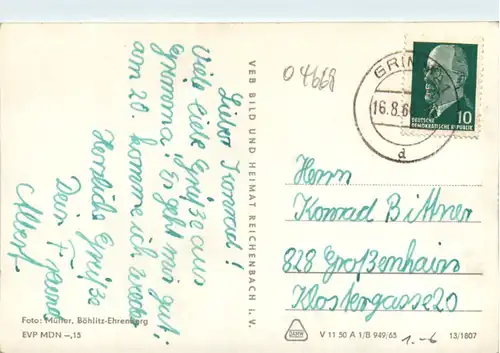 Lieber Konrad!
Viele liebe Grüße aus
Grimma! Es geht mir gut.
am 20. komme ich wieder
Herzliche Grüße
Dein Freund
Albert
Foto: Müller, Böhlitz-Ehrenberg
EVP MDN –,15
VEB BILD UND HEIMAT REICHENBACH I. V.
04668
GRIM
16.8.6
d
10
DEUTSCHE
DEMOKRATISCHE REPUBLIK
Herrn
Konrad Bittner
828 Großenhain
Klostergasse 20
V 11 50 A 1/B 949/65
1.-6
13/1807